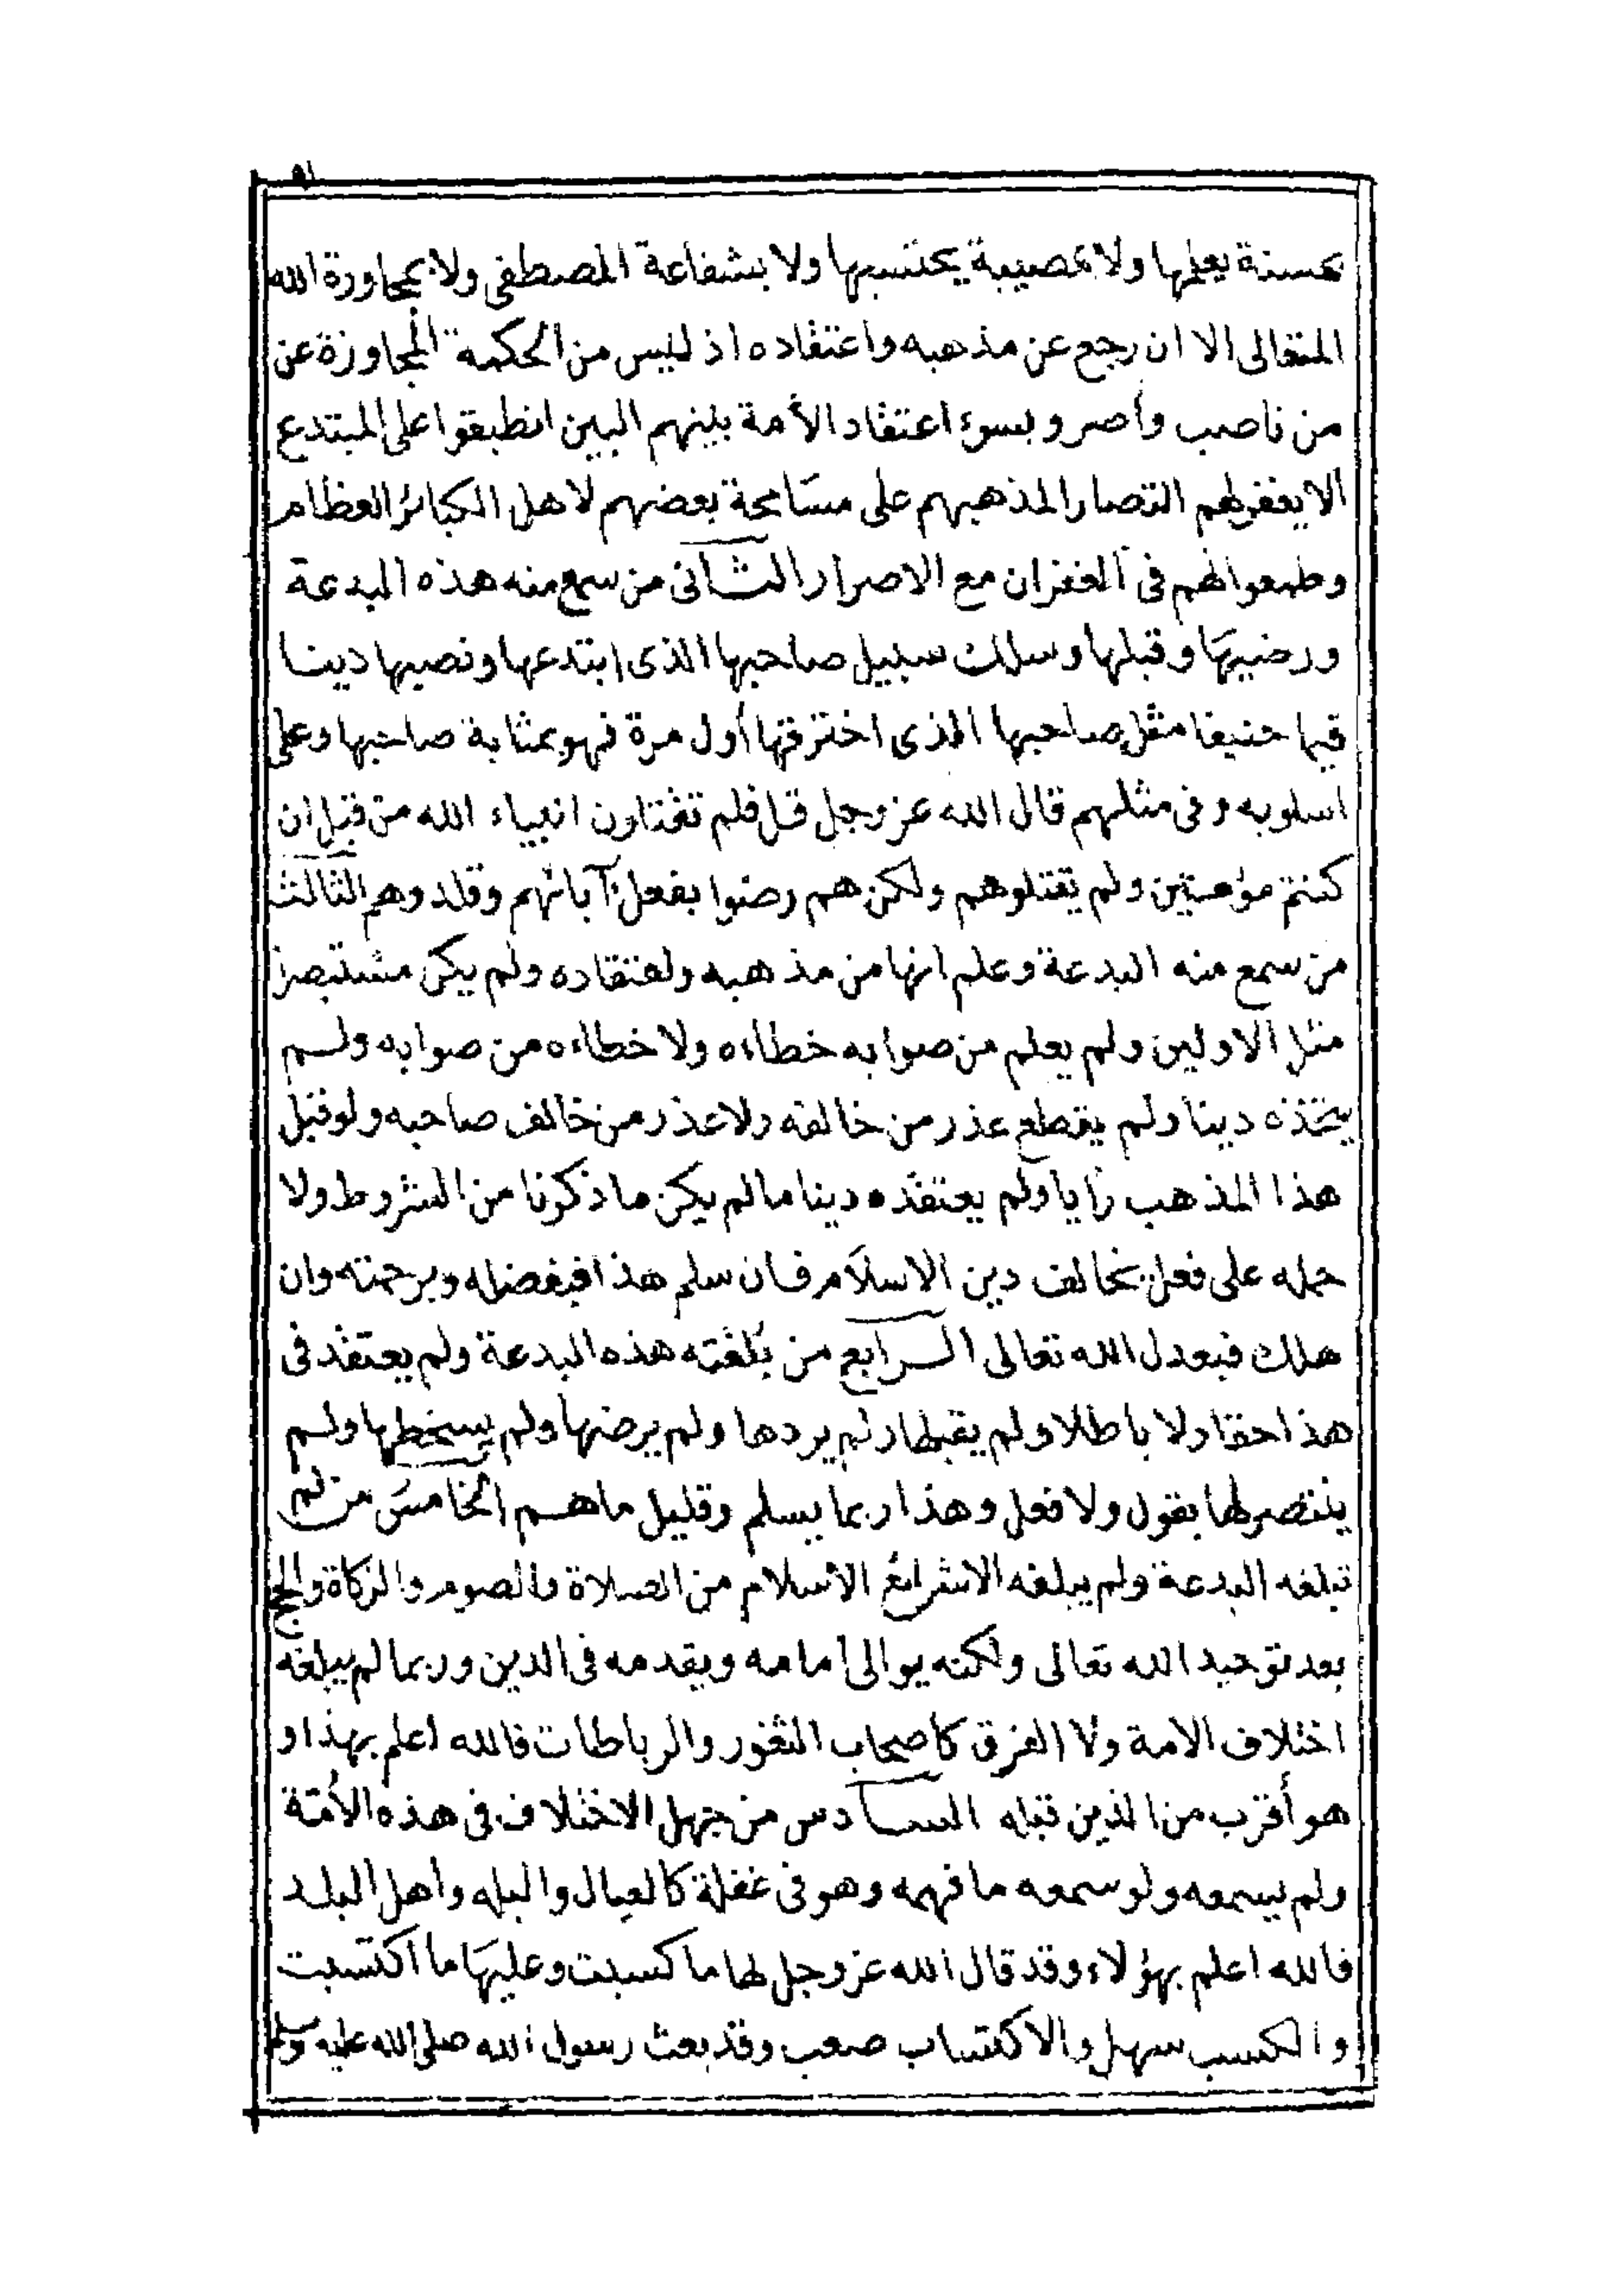 ٥١
بحسنة يعلمها ولا بمصيبة يحتسبها ولا بشفاعة المصطفى ولا بمجاورة الله
المتعالى الا ان رجع عن مذهبه واعتقاده اذ ليس من الحكمة المجاوزة عن
من ناصب وأصر وبسوء اعتقاد الأمة بينهم البين انطبقوا على المبتدع
الا يغفر لهم انتصارا لمذهبهم على مسامحة بعضهم لاهل الكبائر العظام
وطمعوا لهم فى الغفران مع الاصرار الثانى من سمع منه هذه البدعة
ورضيها وقبلها وسلك سبيل صاحبها الذى ابتدعها ونصبها دينا
قيما حنيفا مثل صاحبها الذى اخترقها أول مرة فهو بمثابة صاحبها وعلى
اسلوبه وفى مثلهم قال الله عز وجل قل فلم تقتلون انبياء الله من قبل ان
كنتم مؤمنين ولم يقتلوهم ولكن هم رضوا بفعل آبائهم وقلدوهم الثالث
من سمع منه البدعة وعلم انها من مذهبه واعتقاده ولم يكن مستبصرا
مثل الاولين ولم يعلم من صوابه خطاءه ولا خطاءه من صوابه ولم
يتخذه دينا ولم يقطع عذر من خالفه ولا عذر من خالف صاحبه ولو قبل
هذا المذهب رأيا ولم يعتقده دينا ما لم يكن ما ذكرنا من الشروط ولا
حمله على فعل يخالف دين الاسلام فان سلم هذا فبفضله وبرحمته وان
هلك فبعدل الله تعالى الرابع من بلغته هذه البدعة ولم يعتقد فى
هذا حقا ولا باطلا ولم يقبلها ولم يردها ولم يرضها ولم يسخطها ولم
ينتصر لها بقول ولا فعل وهذا ربما يسلم وقليل ما هم الخامس من لم
تبلغه البدعة ولم يبلغه الا شرائع الاسلام من الصلاة والصوم والزكاة والحج
بعد توحيد الله تعالى ولكنه يوالى امامه ويقدمه فى الدين وربما لم يبلغه
اختلاف الامة ولا الفرق كاصحاب الثغور والرباطات فالله اعلم بهذا و
هو أقرب من الذين قبله السادس من جهل الاختلاف فى هذه الأمة
ولم يسمعه ولو سمعه ما فهمه وهو فى غفلة كالعيال والبله وأهل البلد
فالله اعلم بهؤلاء وقد قال الله عز وجل لها ما كسبت وعليها ما اكتسبت
والكسب سهل والاكتساب صعب وقد بعث رسول الله صلى الله عليه وسلم